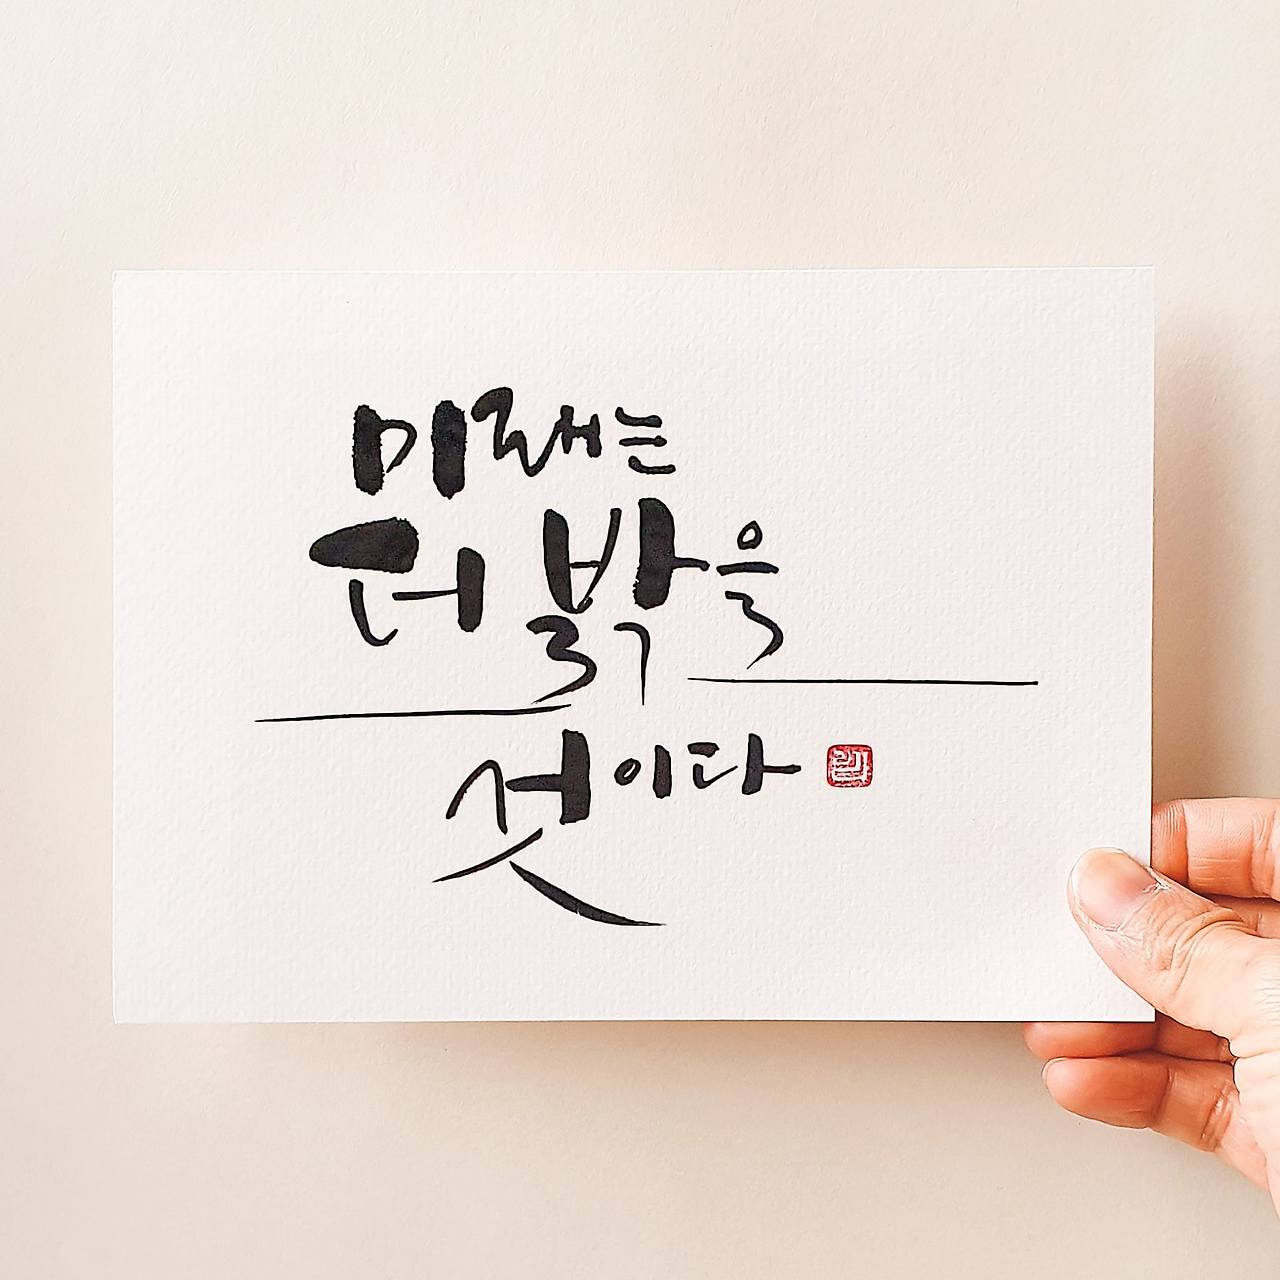 미래는
더 밝을
것이다